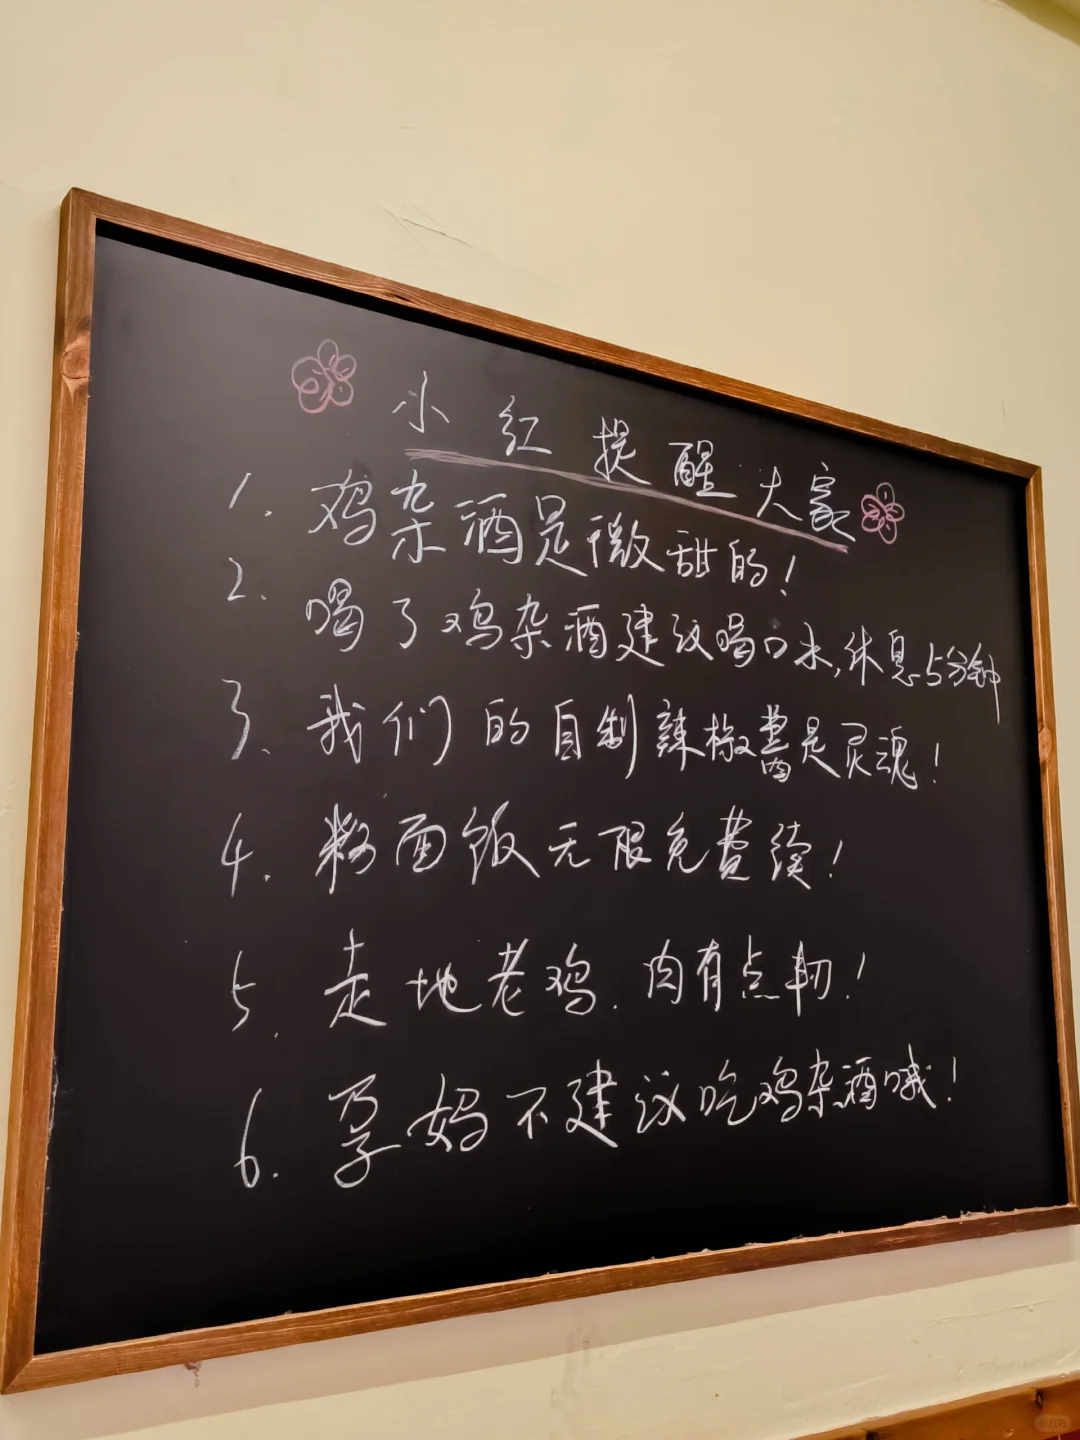 小红提醒大家
1. 鸡杂酒是微甜的!
2. 喝了鸡杂酒建议喝口水,休息5分钟
3. 我们的自制辣椒酱是灵魂!
4. 粉面饭无限免费续!
5. 走地老鸡.肉有点韧!
6. 孕妈不建议吃鸡杂酒哦!
小红书